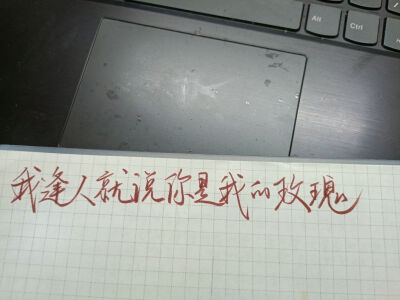 Alt
Ctrl
我逢人就说你是我的玫瑰